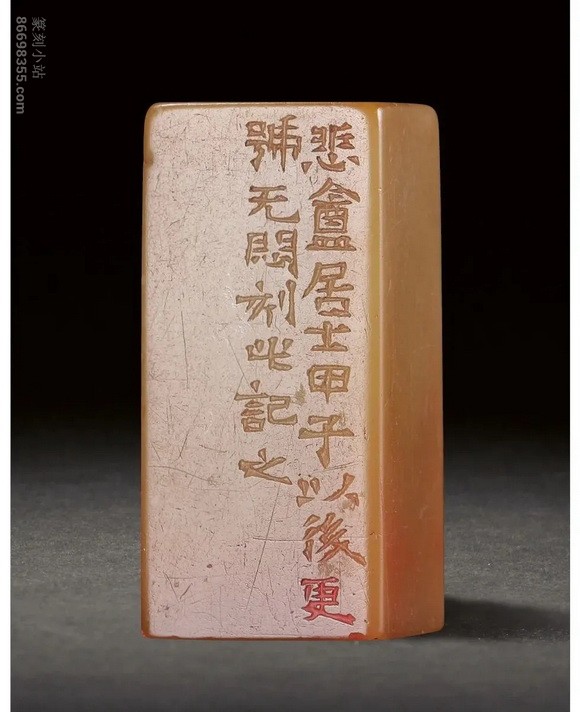 悲盦居士甲子以後更
號无悶刻此記之
篆刻小站
86698355.com